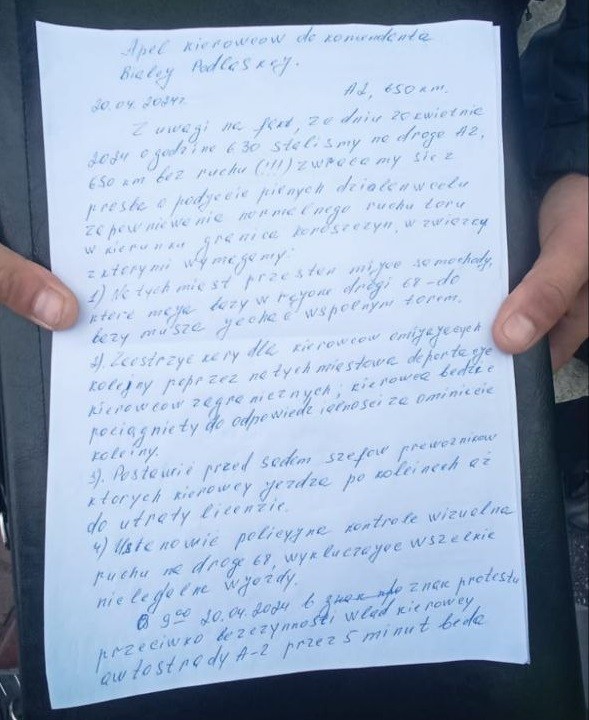 Apel kierowcow do komendanta
Bialey Podlaskey.
20.04.2024r. A2, 650 km.
Z uwagi na fakt, ze dniu 20 kwietnia
2024 o godzine 6 30 stalismy na drogo A2,
650 km bez ruchu (!!!) zwracamy sie z
prosba o podjecie pilnych dzialen w celu
zapewniewania normalnego ruchu toru
w kierunku granica koroszczyn, w zwiazcy
z ktorymi wymagamy:
1) Natychmiast przestan mijac samochody,
ktore maja bazy w rejone drogi 68 - do
bazy musza jechac wspolnym torem.
2). Zaostrzyc kary dla kierowcow omijajacych
kolejny poprzez natychmiastowa deportacje
kierowcow zagranicznych; kierowca bedzie
pociagniety do odpowiedzialnosci za ominiecie
koleiny.
3). Postawic przed sadem szefow przewoznikow
ktorych kierowcy jezdza po koleinach az
do utraty licenzie.
4) Ustanowic policyjna kontrole wizualna
ruchu na drogo 68, wykluczajac wszelkie
nielegalne wyjazdy.
O 9 00 20.04.2024 w znak protestu
przeciwko bezczynnosti wlad kierowcy
awtostrady A-2 przez 5 minut beda